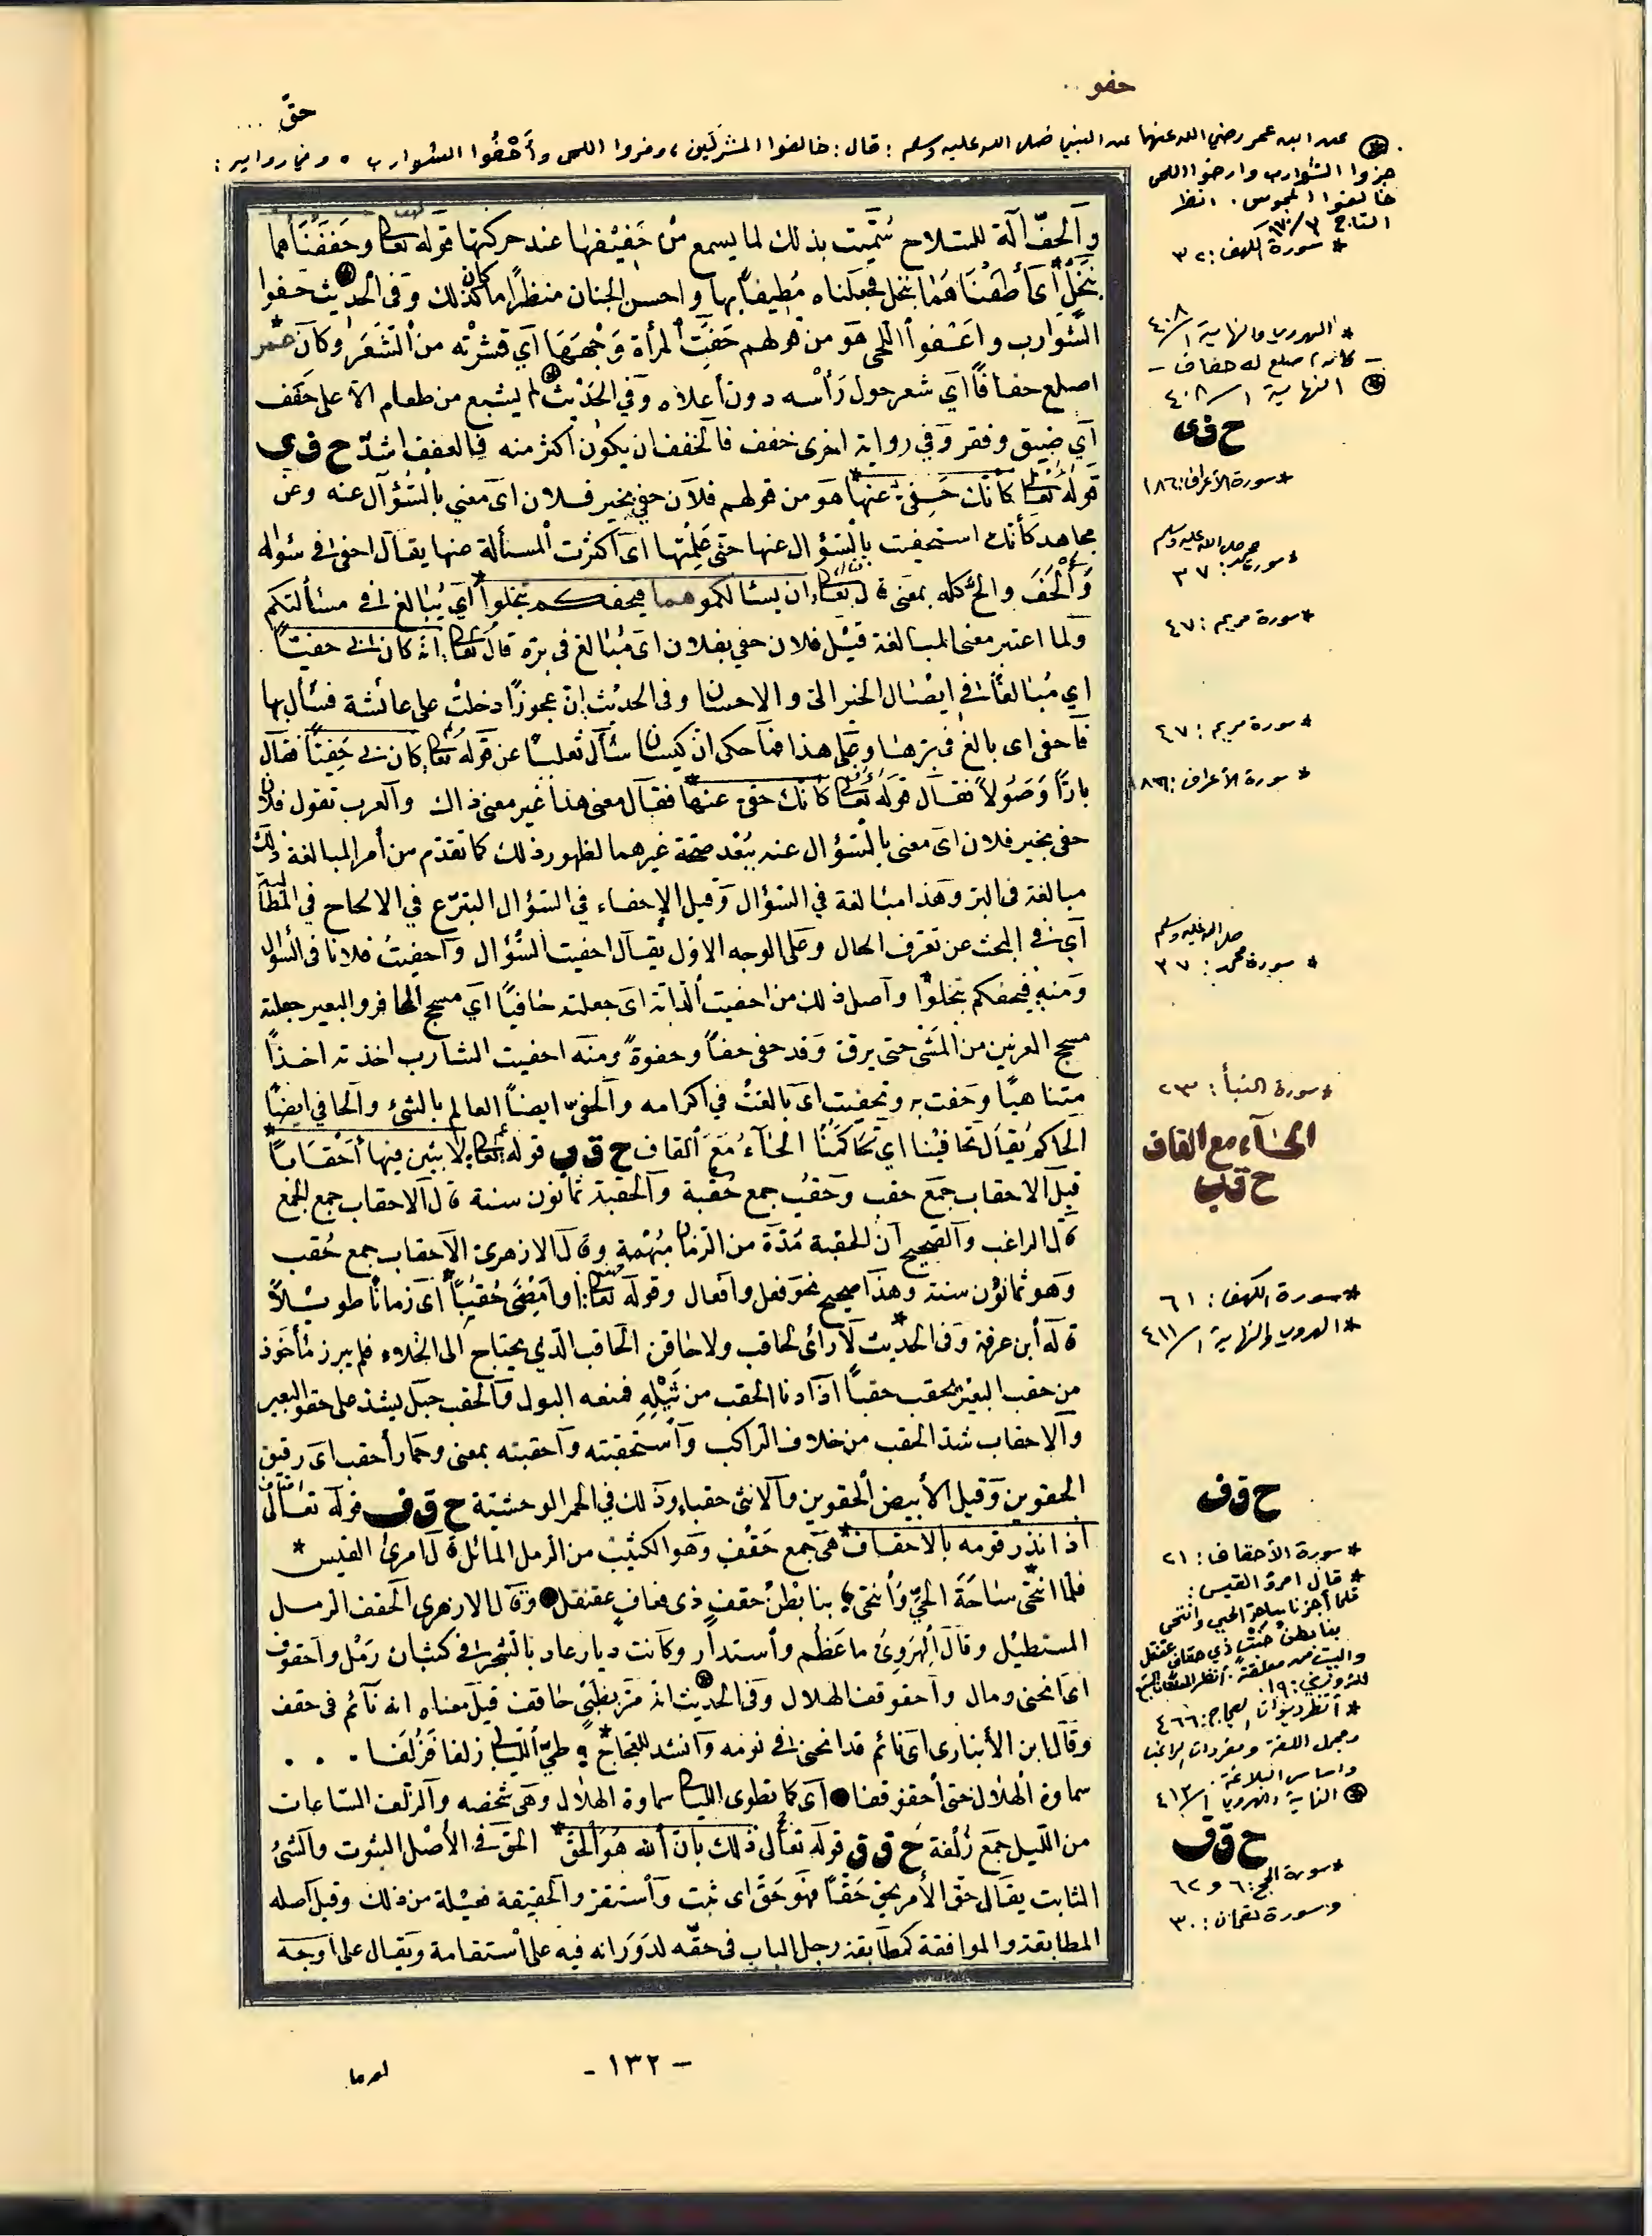 حفو ..
حقّ ...
⊛ عن ابن عمر رضي الله عنهما عن النبي صلى الله عليه وسلم : قال : خالفوا المشركين ، وفروا اللحى وأحْفُوا الشوارب ٠ وفي رواية :
جزوا الشوارب وارخوا اللحى
خالفوا المجوس . انظر
التاج
* سورة الكهف : ٣٢
والحفّ آلة للنساج سُمّيت بذلك لما يسمع من حَفِيْفها عند حركتها قوله تعالى وحَفَفْنَاهما
بنَخْلٍ أي أَطَفْنَاهُما بنخل فجعلناه مُطِيفاً بها واحسن الجنان منظرًا ما كان كذلك وفي الحديث حفوا
الشوارب واعْفوا اللحى هو من قولهم حَفَّتْ المرأة وَجْهَهَا أي قشرْته من الشَّعَر وكان عمر
اصلع حفافًا أي شعر حول رَأسه دون أعلاه وفي الحَدْيث لم يشبع من طعام الا على حَفَف
أي ضيق وفقر وفي رواية اخرى ضفف فالحفف ان يكون اكثر منه فالضفف اشدّ ح ف ى
قوله تعالى كأنك حَفِىٌّ عنها هو من قولهم فلان حفي بخبر فلان اى معني بالسُّؤال عنه وعن
مجاهد كأنك استحفيت بالسؤال عنها حتى عَلِمْتها اى اكثرت المسألة عنها يقال احفى في سؤاله
وَأَلْحَفَ والحّ كله بمعنى قال تعالى ان يسألكموها فيحفكم تبخلوا أي يُبالغ في مسألتكم
ولما اعتبر معنى المبالغة قيل فلان حفي بفلان اى مُبَالغ في برّه قال تعالى انه كان بي حفيًّا
اي مُبَالغًا في ايصال الخير الي والاحسان وفي الحديث إن عجوزًا دخلت على عائشة فسأل بها
فأحفى اى بالغ في برها وعلى هذا فما حكى ان كيسان سأل ثعلبًا عن قوله تعالى كان بي حَفِيًّا فقال
بارًّا وَصُولاً فقال قوله تعالى كأنك حفي عنها فقال معنى هذا غير معنى ذاك والعرب تقول فلان
حفي بخبر فلان اى معنى بالسؤال عنه يبْعُد صحة غيرهما لظهور ذلك كما تقدم من أمر المبالغة ذلك
مبالغة في البر وهذا مبالغة في السؤال وقيل الإحفاء في السؤال التبرّع في الالحاح في المطالبة
أي في البحث عن تعرّف الحال وعلى الوجه الاول يقال احفيت السُّؤال وأحفيتُ فلانا في السؤال
ومنه فيحفكم تبخلوا وأصل ذلك من احفيت الدابّة اى جعلته حافيًا أي مسحج الحافر والبعير جعلته
مسحج الفرسن من المَشْى حتى يرقّ وقد حفى حفاً وحفوةً ومنه احفيت الشارب اخذته اخذًا
متناهيًا وحفت به وتحفيت اى بالغتُ في اكرامه والحفيّ ايضاً العالم بالشئ والحافي ايضًا
الحاكم يُقال تحافينا اي تَحَاكَمْنَا الحآءُ مَعَ القاف ح ق ب قوله تعالى لابثين فيها أحْقَابًا
قيل الاحقاب جمع حقب وحقب جمع حُقْبة والحقبة ثمانون سنة قال الاحقاب جمع الجمع
قال الراغب والصحيح أن الحقبة مُدَّة من الزمان مُبْهَمة وقال الازهري الأحقاب جمع حُقب
وهو ثمانُون سنة وهذا صحيح نحو فعل وافعال وقوله تعالى أو أَمْضِيَ حُقُبًا أى زماناً طويلاً
قاله أبن عرفة وفى الحديث لا رأى لحاقب ولا حاقن الحاقب الذي يحتاج الى الخلاء فلم يبرز مأخوذ
من حقب البعير يحقب حقباً اذا دنا الحقب من ثَيْلِهِ فمنعه البول والحقب حبل يشد على حقو البعير
والاحقاب شد الحقب من خلاف الراكب وأستحقبته وأحقبته بمعنى وحمار أحقب اى رقيق
الحقوين وقيل الأبيض الحقوين والانثى حقباء وذلك في الحمر الوحشية ح ق ف قوله تعالى
اذ انذر قومه بالاحقاف هي جمع حَقْفٍ وهو الكثيب من الرمل المائل قال امرئ القيس *
فلما انتحى سَاحَةَ الحيِّ وَأنتحى ؛ بنا بَطْنُ حقفٍ ذى قفافٍ عقنقل● وقال الازهري الحقف الرمل
المستطيل وقال الهروي ما عَظُم واستدار وكانت ديار عاد بالشِّحْر في كثبان رَمْل وأحقوقف
اى انحنى ومال وأحقوقف الهلال وفى الحديث انه مرّ بظبيٍ حاقف قيل معناه انه نآئم فى حقف
وقال ابن الأنبارى اى نائم قد انحنى في نومه وأنشد للعجاج ؛ طيَّ الليالي زلفا فزُلَفا . . .
سماوة الهلال حتى أحقوقفا ● اى كما تطوى الليالي سماوة الهلال وهى شخصه والزلف الساعات
من الليل جمع زُلْفة ح ق ق قوله تعالى ذلك بأن الله هُوَ الحَقّ الحق في الأصْل الثبوت والشئ
الثابت يقال حق الأمر يحق حَقًّا فهو حَقّ اى ثبت وأستقرّ والحقيقة فعيلة من ذلك وقيل اصله
المطابقة والموافقة كمطابقة رجل الباب فى حقّه لدَوَرانه فيه على أستقامة ويقال على أوجه
* الهروي والنهاية ١/٤٠٨
– كان اصلع له حفاف –
⊛ النهاية ١/٤٠٨
ح ف ى
* سورة الأعراف : ١٨٦
* سورة محمد صلى الله عليه وسلم : ٣٧
* سورة مريم : ٤٧
* سورة مريم : ٤٧
* سورة الأعراف : ١٨٦
صلى الله عليه وسلم
* سورة محمد : ٣٧
* سورة النبأ : ٢٣
الحَآء مع القاف
ح ق ب
* سورة الكهف : ٦١
* الهروي والنهاية ١/٤١١
ح ق ف
* سورة الأحقاف : ٢١
* قال امرؤ القيس :
فلما أجزنا ساحة الحي وانتحى
بنا بطن خَبْتٍ ذي حقاف عقنقل
والبيت من معلقته . انظر المعلقات السبع
للزوزني : ١٩.
* انظر ديوان العجاج : ٤٦٦
ومجمل اللغة ومفردات الراغب
واساس البلاغة .
⊛ النهاية والهروي ١/٤١٣
ح ق ق
* سورة الحج : ٦ و ٦٢
وسورة لقمان : ٣٠
- ١٣٢ -